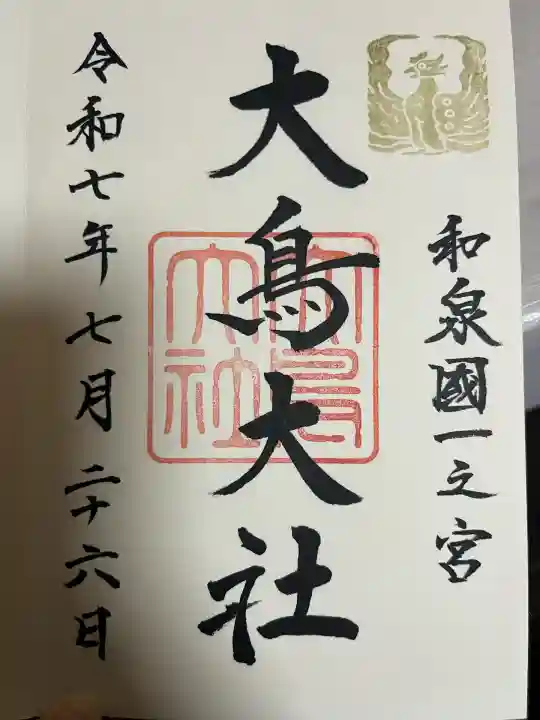 和泉國一之宮
大鳥大社
大鳥大社
令和七年七月二十六日